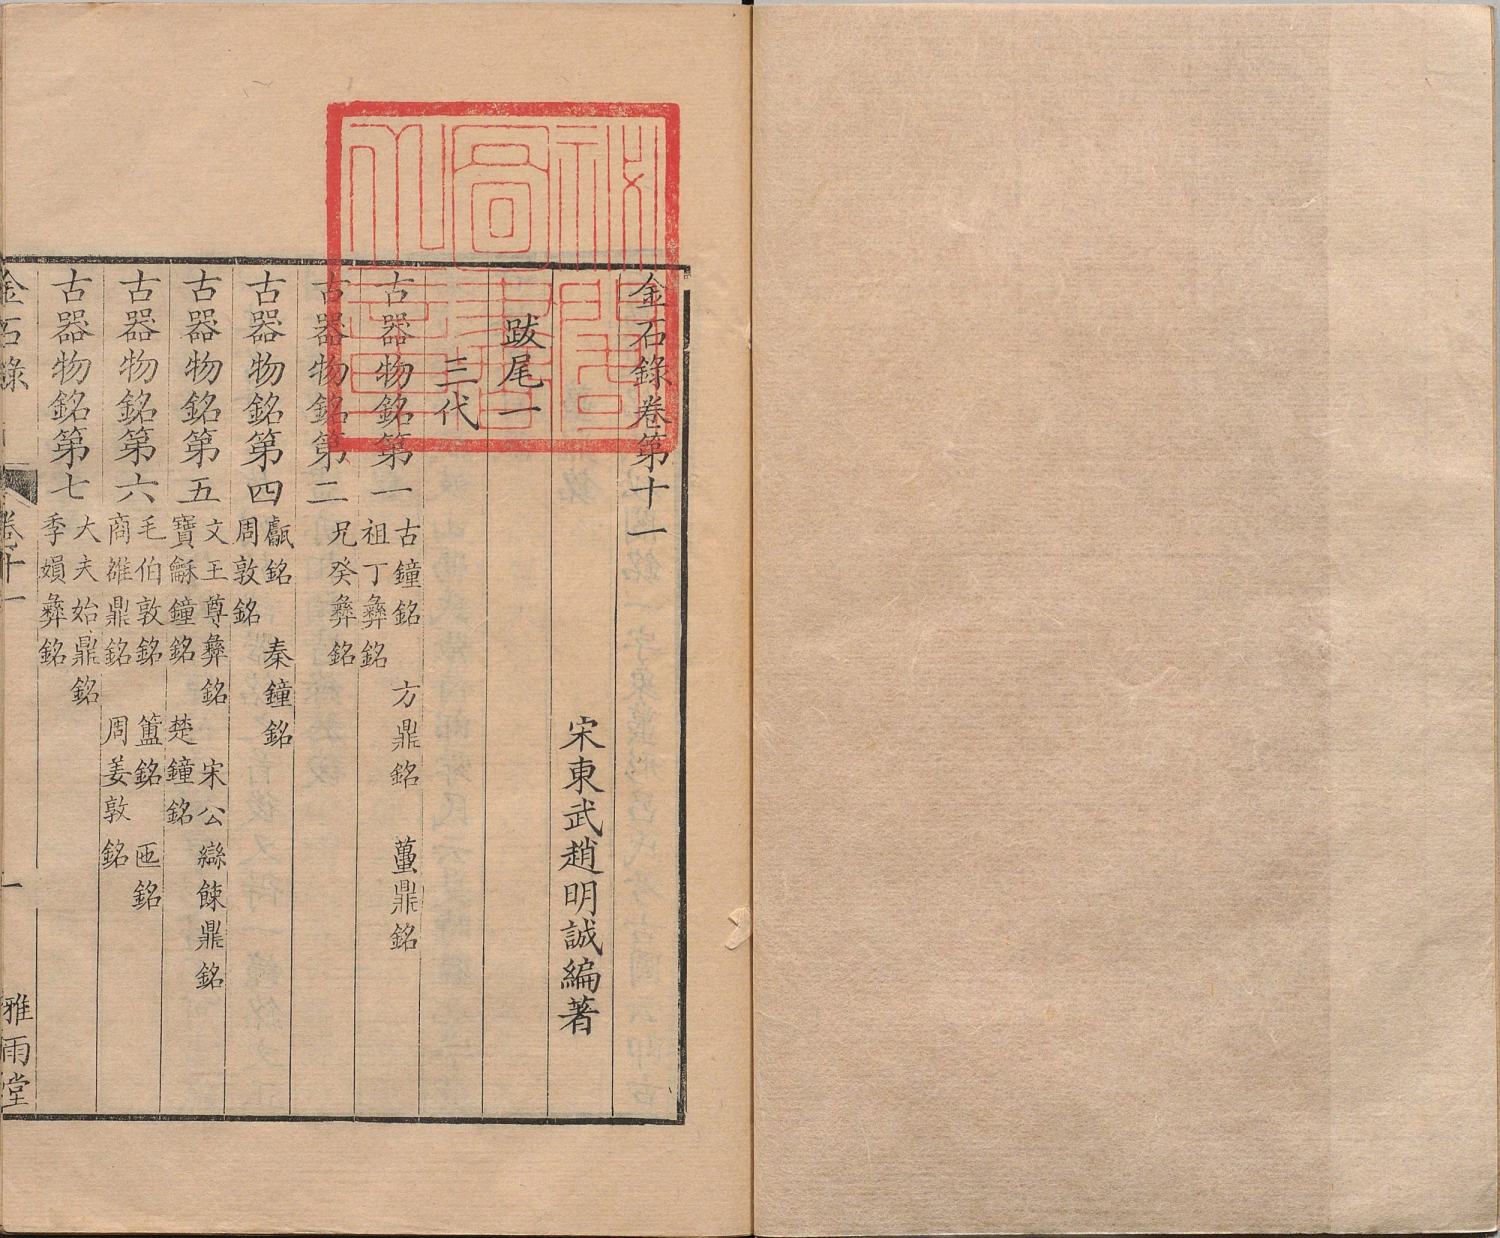 祕閣
圖書
之章
金石錄卷第十一
宋東武趙明誠編著
跋尾一
三代
古器物銘第一 古鐘銘 方鼎銘 蠆鼎銘
祖丁彝銘
古器物銘第二 兄癸彝銘
古器物銘第四 甗銘 秦鐘銘
周敦銘
古器物銘第五 文王尊彝銘 宋公䜌餗鼎銘
寶龢鐘銘 楚鐘銘
古器物銘第六 毛伯敦銘 簠銘 匜銘
商雒鼎銘 周姜敦銘
古器物銘第七 大夫始鼎銘
季㜏彝銘
金石錄 卷十一 一 雅雨堂